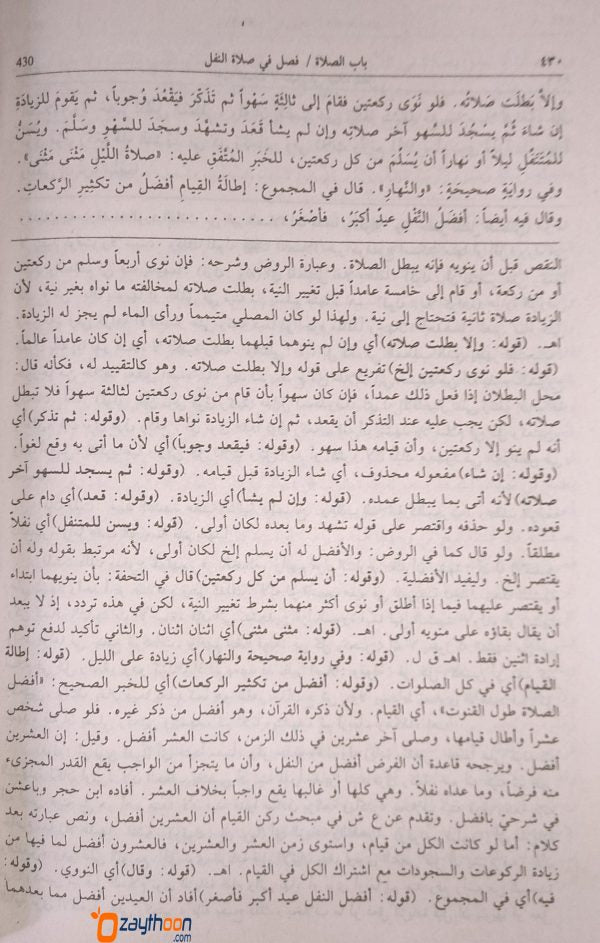 ٤٣٠ باب الصلاة / فصل في صلاة النفل 430
وإلاَّ بطلت صلاته. فلو نَوَى ركعتين فقامَ إلى ثالثةٍ سَهْواً ثم تَذَكَّرَ فيَقْعُدَ وُجوباً، ثم يَقومَ للزيادَةِ
إن شاءَ ثُمَّ يسجُدَ للسهوِ آخر صلاتِه وإن لم يشأ قَعَدَ وتشهَّدَ وسجدَ للسَّهْوِ وسَلَّمَ. ويُسَنُّ
للمُتَنَفِّلِ ليلاً أو نهاراً أن يُسَلِّمَ من كل ركعتين، للخَبَرِ المُتَّفَقِ عليه: «صلاةُ اللَّيْلِ مَثْنَى مَثْنَى».
وفي روايَةٍ صحيحَةٍ: «والنَّهارِ». قال في المجموع: إطالَةُ القِيامِ أفضلُ من تكثيرِ الرَّكعاتِ.
وقال فيه أيضاً: أفضلُ النَّفْلِ عيدٌ أكبَرُ، فأصْغَرُ، ...........................
النقص قبل أن ينويه فإنه يبطل الصلاة. وعبارة الروض وشرحه: فإن نوى أربعاً وسلم من ركعتين
أو من ركعة، أو قام إلى خامسة عامداً قبل تغيير النية، بطلت صلاته لمخالفته ما نواه بغير نية، لأن
الزيادة صلاة ثانية فتحتاج إلى نية. ولهذا لو كان المصلي متيمماً ورأى الماء لم يجز له الزيادة.
اهـ. (قوله: وإلا بطلت صلاته) أي وإن لم ينوهما قبلهما بطلت صلاته، أي إن كان عامداً عالماً.
(قوله: فلو نوى ركعتين إلخ) تفريع على قوله وإلا بطلت صلاته. وهو كالتقييد له، فكأنه قال:
محل البطلان إذا فعل ذلك عمداً، فإن كان سهواً بأن قام من نوى ركعتين لثالثة سهواً فلا تبطل
صلاته، لكن يجب عليه عند التذكر أن يقعد، ثم إن شاء الزيادة نواها وقام. (وقوله: ثم تذكر) أي
أنه لم ينو إلا ركعتين، وأن قيامه هذا سهو. (وقوله: فيقعد وجوباً) أي لأن ما أتى به وقع لغواً.
(وقوله: إن شاء) مفعوله محذوف، أي شاء الزيادة قبل قيامه. (وقوله: ثم يسجد للسهو آخر
صلاته) لأنه أتى بما يبطل عمده. (قوله: وإن لم يشأ) أي الزيادة. (وقوله: قعد) أي دام على
قعوده. ولو حذفه واقتصر على قوله تشهد وما بعده لكان أولى. (قوله: ويسن للمتنفل) أي نفلاً
مطلقاً. ولو قال كما في الروض: والأفضل له أن يسلم إلخ لكان أولى، لأنه مرتبط بقوله وله أن
يقتصر إلخ. وليفيد الأفضلية. (وقوله: أن يسلم من كل ركعتين) قال في التحفة: بأن ينويهما ابتداء
أو يقتصر عليهما فيما إذا أطلق أو نوى أكثر منهما بشرط تغيير النية، لكن في هذه تردد، إذ لا يبعد
أن يقال بقاؤه على منويه أولى. اهـ. (قوله: مثنى مثنى) أي اثنان اثنان. والثاني تأكيد لدفع توهم
إرادة اثنين فقط. اهـ ق ل. (قوله: وفي رواية صحيحة والنهار) أي زيادة على الليل. (قوله: إطالة
القيام) أي في كل الصلوات. (وقوله: أفضل من تكثير الركعات) أي للخبر الصحيح: «أفضل
الصلاة طول القنوت»، أي القيام. ولأن ذكره القرآن، وهو أفضل من ذكر غيره. فلو صلى شخص
عشراً وأطال قيامها، وصلى آخر عشرين في ذلك الزمن، كانت العشر أفضل. وقيل: إن العشرين
أفضل. ويرجحه قاعدة أن الفرض أفضل من النفل، وأن ما يتجزأ من الواجب يقع القدر المجزىء
منه فرضاً، وما عداه نفلاً. وهي كلها أو غالبها يقع واجباً بخلاف العشر. أفاده ابن حجر وباعشن
في شرحَيْ بافضل. وتقدم عن ع ش في مبحث ركن القيام أن العشرين أفضل، ونص عبارته بعد
كلام: أما لو كانت الكل من قيام، واستوى زمن العشر والعشرين، فالعشرون أفضل لما فيها من
زيادة الركوعات والسجودات مع اشتراك الكل في القيام. اهـ. (قوله: وقال) أي النووي. (وقوله:
فيه) أي في المجموع. (قوله: أفضل النفل عيد أكبر فأصغر) أفاد أن العيدين أفضل مما بعدهما
Ozaythoon
.com